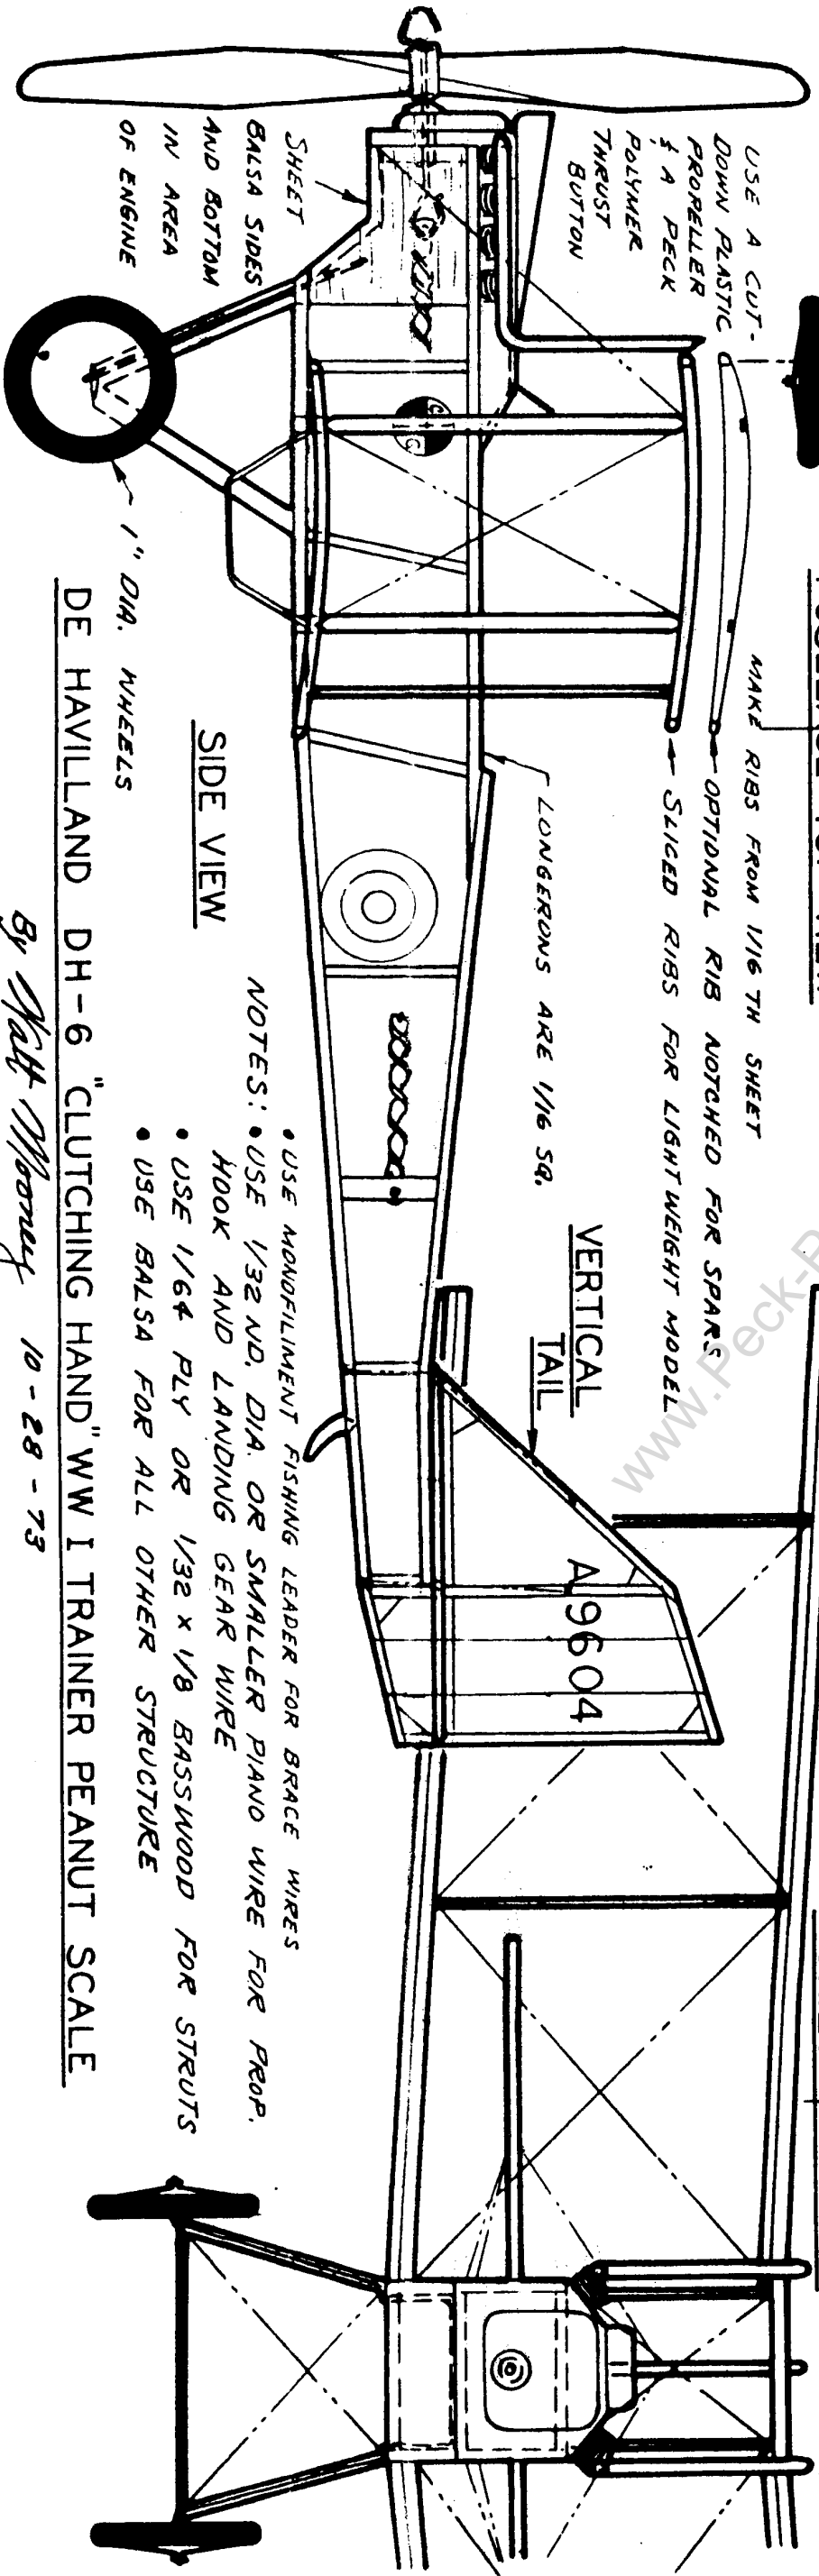 USE A CUT-
DOWN PLASTIC
PROPELLER
& A PECK
POLYMER
THRUST
BUTTON
SHEET
BALSA SIDES
AND BOTTOM
IN AREA
OF ENGINE
1" DIA. WHEELS
C G
MAKE RIBS FROM 1/16 TH SHEET
OPTIONAL RIB NOTCHED FOR SPARS
SLICED RIBS FOR LIGHT WEIGHT MODEL
LONGERONS ARE 1/16 SQ.
VERTICAL
TAIL
A9604
www.Peck-P
SIDE VIEW
• USE MONOFILIMENT FISHING LEADER FOR BRACE WIRES
NOTES: • USE 1/32 ND. DIA. OR SMALLER PIANO WIRE FOR PROP.
HOOK AND LANDING GEAR WIRE
• USE 1/64 PLY OR 1/32 X 1/8 BASSWOOD FOR STRUTS
• USE BALSA FOR ALL OTHER STRUCTURE
DE HAVILLAND DH-6 "CLUTCHING HAND" WW I TRAINER PEANUT SCALE
By Walt Mooney 10-28-73